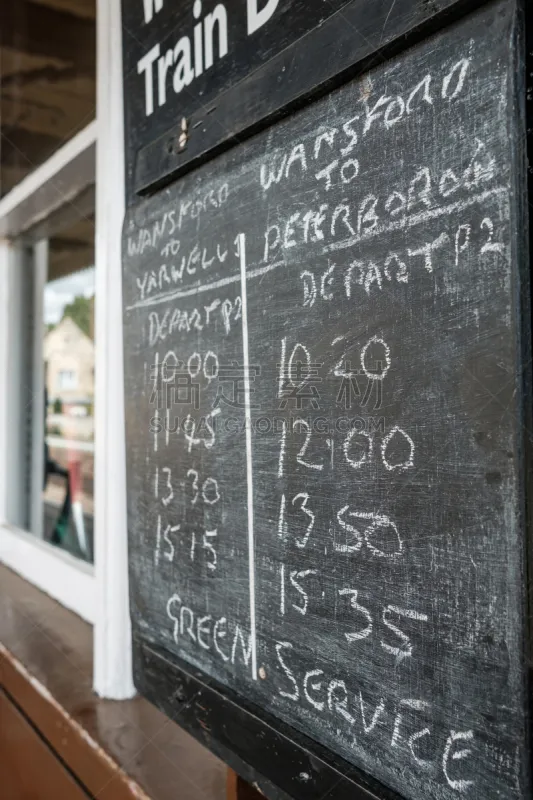 Train D
WANSFORD
TO
YARWELL
DEPART P2
10:00
11:45
13:30
15:15
WANSFORD
TO
PETERBORO
DEPART P2
10 20
12:00
13.50
15.35
GREEN SERVICE